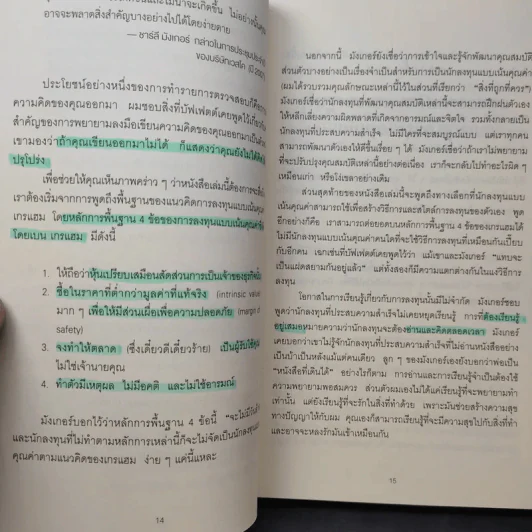 อาจพลาดสิ่งสำคัญบางอย่างไปได้โดยง่ายดาย
— ชาร์ลี มังเกอร์ กล่าวในการประชุมประจำ
ของบริษัทเวสโค
ประโยชน์อย่างหนึ่งของการทำรายการตรวจสอบก็คือ
ความคิดของคุณออกมา ผมชอบสิ่งที่บัฟเฟตต์เคยพูดไว้เกี่ยวกับ
สำคัญของการพยายามลงมือเขียนความคิดของคุณออกมา
เขามองว่าถ้าคุณเขียนออกมาไม่ได้ ก็แสดงว่าคุณยังไม่ได้คิด
ปรุโปร่ง
เพื่อช่วยให้คุณเห็นภาพคร่าว ๆ ว่าหนังสือเล่มนี้ต้องการจะสื่อ
เราต้องเริ่มจากการพูดถึงพื้นฐานของแนวคิดการลงทุนแบบเน้นคุณค่า
เกรแฮม โดยหลักการพื้นฐาน 4 ข้อของการลงทุนแบบเน้นคุณค่า
โดยเบน เกรแฮม มีดังนี้
1. ให้ถือว่าหุ้นเปรียบเสมือนสัดส่วนการเป็นเจ้าของธุรกิจนั้น
2. ซื้อในราคาที่ต่ำกว่ามูลค่าที่แท้จริง (intrinsic value)
มาก ๆ เพื่อให้มีส่วนเผื่อเพื่อความปลอดภัย (margin of
safety)
3. จงทำให้ตลาด (ซึ่งเดี๋ยวดีเดี๋ยวร้าย) เป็นผู้รับใช้คุณ
ไม่ใช่เจ้านายคุณ
4. ทำตัวมีเหตุผล ไม่มีอคติ และไม่ใช้อารมณ์
มังเกอร์บอกไว้ว่าหลักการพื้นฐาน 4 ข้อนี้ "จะไม่มีวัน
และนักลงทุนที่ไม่ทำตามหลักการเหล่านี้ก็จะไม่จัดเป็นนักลงทุน
คุณค่าตามแนวคิดของเกรแฮม ง่าย ๆ แค่นี้แหละ
14
นอกจากนี้ มังเกอร์ยังเชื่อว่าการเข้าใจและรู้จักพัฒนาคุณสมบัติ
ส่วนตัวบางอย่างเป็นเรื่องจำเป็นสำหรับการเป็นนักลงทุนแบบเน้นคุณค่า
(ผมได้รวบรวมคุณลักษณะเหล่านี้ไว้ในส่วนที่เรียกว่า "สิ่งที่ถูกที่ควร")
มังเกอร์เชื่อว่านักลงทุนที่พัฒนาคุณสมบัติเหล่านี้จะสามารถฝึกฝนตัวเอง
ให้หลีกเลี่ยงความผิดพลาดที่เกิดจากอารมณ์และจิตใจ รวมทั้งกลายเป็น
นักลงทุนที่ประสบความสำเร็จ ไม่มีใครที่จะสมบูรณ์แบบ แต่เราทุกคน
สามารถพัฒนาตัวเองให้ดีขึ้นเรื่อย ๆ ได้ มังเกอร์เชื่อว่าถ้าเราไม่พยายาม
ที่จะปรับปรุงคุณสมบัติเหล่านี้อย่างต่อเนื่อง เราก็จะกลับไปทำอะไรผิด ๆ
เหมือนเก่า หรือโง่เขลาอย่างเดิม
ส่วนสุดท้ายของหนังสือเล่มนี้จะพูดถึงทางเลือกที่นักลงทุนแบบเน้น
คุณค่าสามารถใช้เพื่อสร้างวิธีการและสไตล์การลงทุนของตัวเอง พูด
อีกอย่างก็คือ เราสามารถต่อยอดบนหลักการพื้นฐาน 4 ข้อของเกรแฮมได้
ไม่มีนักลงทุนแบบเน้นคุณค่าคนใดที่จะใช้วิธีการลงทุนที่เหมือนกันเปี๊ยบ
กับอีกคน เฉกเช่นที่บัฟเฟตต์เคยพูดไว้ว่า แม้เขาและมังเกอร์ "แทบจะ
เป็นแฝดสยามกันอยู่แล้ว" แต่ทั้งสองก็มีความแตกต่างกันในแง่วิธีการลง
ทุน
โอกาสในการเรียนรู้เกี่ยวกับการลงทุนนั้นมีไม่จำกัด มังเกอร์ชอบ
พูดว่านักลงทุนที่ประสบความสำเร็จไม่เคยหยุดเรียนรู้ การที่ต้องเรียนรู้
อยู่เสมอหมายความว่านักลงทุนจะต้องอ่านและคิดตลอดเวลา มังเกอร์
เคยบอกว่าเขาไม่รู้จักนักลงทุนที่ประสบความสำเร็จที่ไม่อ่านหนังสืออย่าง
เป็นบ้าเป็นหลังแม้แต่คนเดียว ลูก ๆ ของมังเกอร์เองยังบอกว่าพ่อเป็น
"หนังสือที่เดินได้" อย่างไรก็ตาม การอ่านและการเรียนรู้จำเป็นต้องใช้
ความพยายามพอสมควร ส่วนตัวผมเองไม่ได้แค่เรียนรู้ที่จะพยายามทำ
เท่านั้น แต่ยังเรียนรู้ที่จะรักในสิ่งที่ทำด้วย เพราะมันช่วยสร้างความสุข
ทางปัญญาให้กับผม คุณเองก็สามารถเรียนรู้ที่จะมีความสุขไปกับสิ่งที่ทำ
และอาจจะหลงรักมันเข้าเหมือนกัน
15